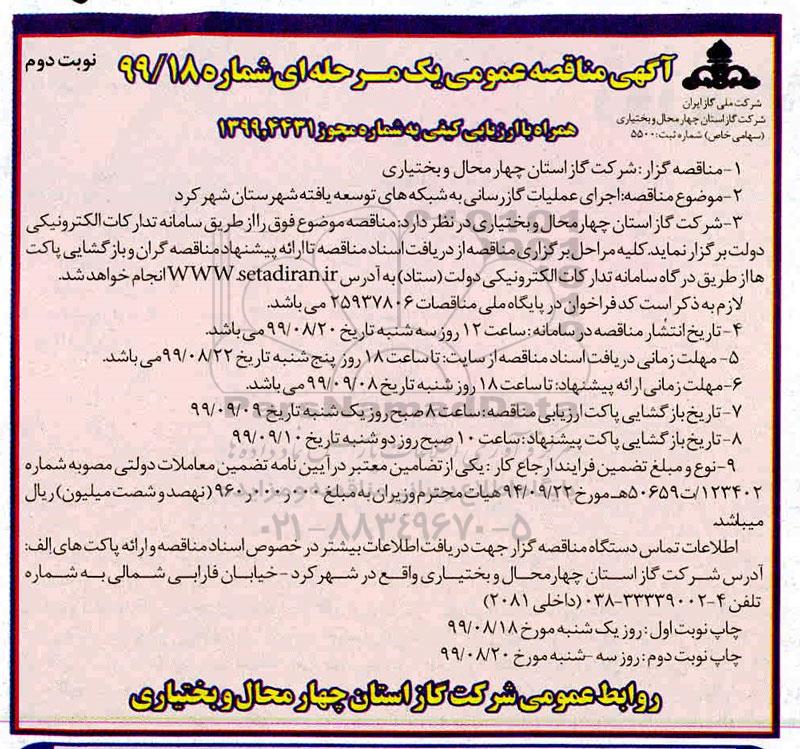 نوبت دوم
آگهی مناقصه عمومی یک مرحله ای شماره ۹۹/۱۸
شرکت ملی گاز ایران
شرکت گاز استان چهار محال و بختیاری
(سهامی خاص) شماره ثبت: ۵۵۰۰
همراه با ارزیابی کیفی به شماره مجوز ۱۳۹۹,۴۴۳۱
۱-مناقصه گزار: شرکت گاز استان چهار محال و بختیاری
۲-موضوع مناقصه: اجرای عملیات گازرسانی به شبکه های توسعه یافته شهرستان شهر کرد
۳-شرکت گاز استان چهارمحال و بختیاری در نظر دارد: مناقصه موضوع فوق را از طریق سامانه تدارکات الکترونیکی
دولت برگزار نماید. کلیه مراحل برگزاری مناقصه از دریافت اسناد مناقصه تا ارائه پیشنهاد مناقصه گران و بازگشایی پاکت
ها از طریق درگاه سامانه تدارکات الکترونیکی دولت (ستاد) به آدرس WWW.setadiran.ir انجام خواهد شد.
لازم به ذکر است کد فراخوان در پایگاه ملی مناقصات ۲۵۹۳۷۸۰۶ می باشد.
۴-تاریخ انتشار مناقصه در سامانه: ساعت ۱۲ روز سه شنبه تاریخ ۹۹/۰۸/۲۰ می باشد.
۵- مهلت زمانی دریافت اسناد مناقصه از سایت: تا ساعت ۱۸ روز پنج شنبه تاریخ ۹۹/۰۸/۲۲ می باشد.
۶-مهلت زمانی ارائه پیشنهاد: تا ساعت ۱۸ روز شنبه تاریخ ۹۹/۰۹/۰۸ می باشد.
۷-تاریخ بازگشایی پاکت ارزیابی مناقصه: ساعت ۸ صبح روز یک شنبه تاریخ ۹۹/۰۹/۰۹
۸-تاریخ بازگشایی پاکت پیشنهاد: ساعت ۱۰ صبح روز دو شنبه تاریخ ۹۹/۰۹/۱۰
۹-نوع و مبلغ تضمین فرایند ارجاع کار: یکی از تضامین معتبر در آیین نامه تضمین معاملات دولتی مصوبه شماره
۱۲۳۴۰۲/ت۵۰۶۵۹هـ مورخ ۹۴/۰۹/۲۲ هیات محترم وزیران به مبلغ ۹۶۰٫۰۰۰٫۰۰۰ (نهصد و شصت میلیون) ریال
میباشد.
اطلاعات تماس دستگاه مناقصه گزار جهت دریافت اطلاعات بیشتر در خصوص اسناد مناقصه و ارائه پاکت های الف:
آدرس شرکت گاز استان چهارمحال و بختیاری واقع در شهر کرد-خیابان فارابی شمالی به شماره
تلفن ۴-۰۳۸-۳۳۳۳۹۰۰۲ (داخلی ۲۰۸۱)
چاپ نوبت اول: روز یک شنبه مورخ ۹۹/۰۸/۱۸
چاپ نوبت دوم: روز سه -شنبه مورخ ۹۹/۰۸/۲۰
روابط عمومی شرکت گاز استان چهار محال و بختیاری
ParsNamadData
۰۲۱-۸۸۳۴۹۶۷۰-۵